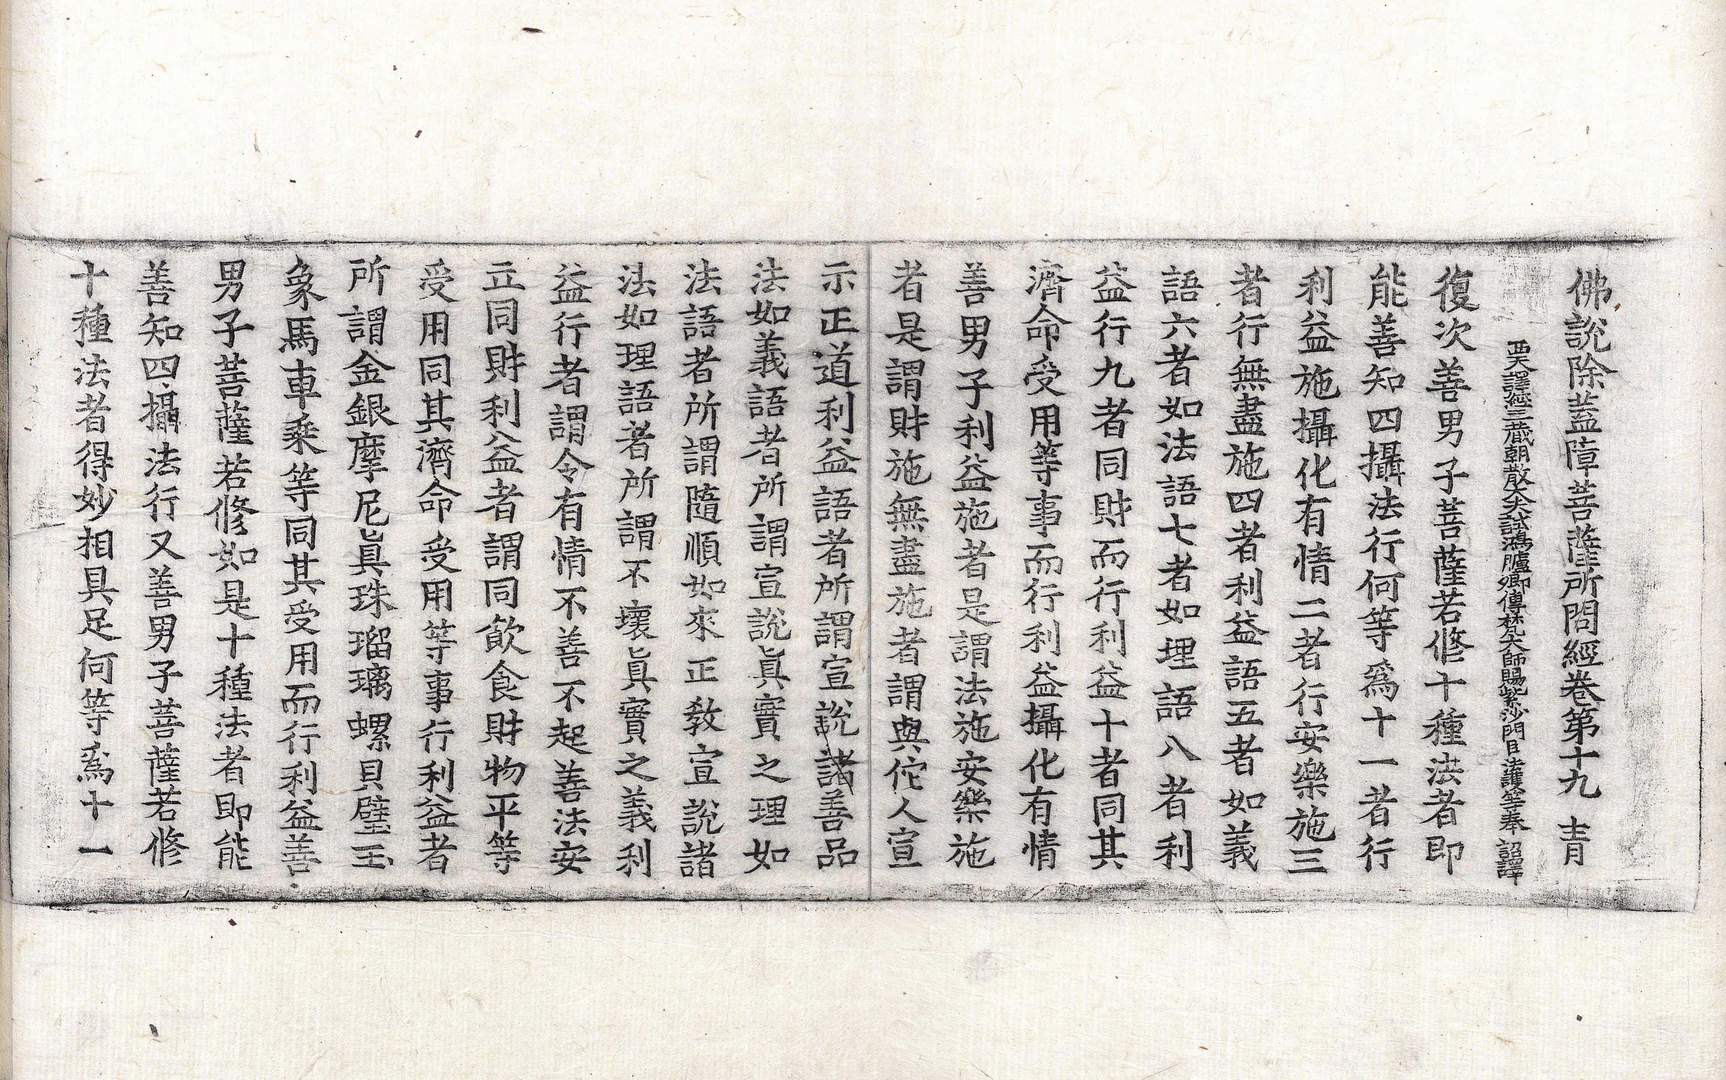 佛說除蓋障菩薩所問經卷第十九 靑
西天譯經三藏朝散大夫試鴻臚卿傳梵大師賜紫沙門臣法護等奉 詔譯
復次善男子菩薩若修十種法者即
能善知四攝法行何等爲十一者行
利益施攝化有情二者行安樂施三
者行無盡施四者利益語五者如義
語六者如法語七者如理語八者利
益行九者同財而行利益十者同其
濟命受用等事而行利益攝化有情
善男子利益施者是謂法施安樂施
者是謂財施無盡施者謂與佗人宣
示正道利益語者所謂宣說諸善品
法如義語者所謂宣說眞實之理如
法語者所謂隨順如來正教宣說諸
法如理語者所謂不壞眞實之義利
益行者謂令有情不善不起善法安
立同財利益者謂同飮食財物平等
受用同其濟命受用等事行利益者
所謂金銀摩尼眞珠瑠璃螺貝璧玉
象馬車乘等同其受用而行利益善
男子菩薩若修如是十種法者即能
善知四攝法行又善男子菩薩若修
十種法者得妙相具足何等爲十一